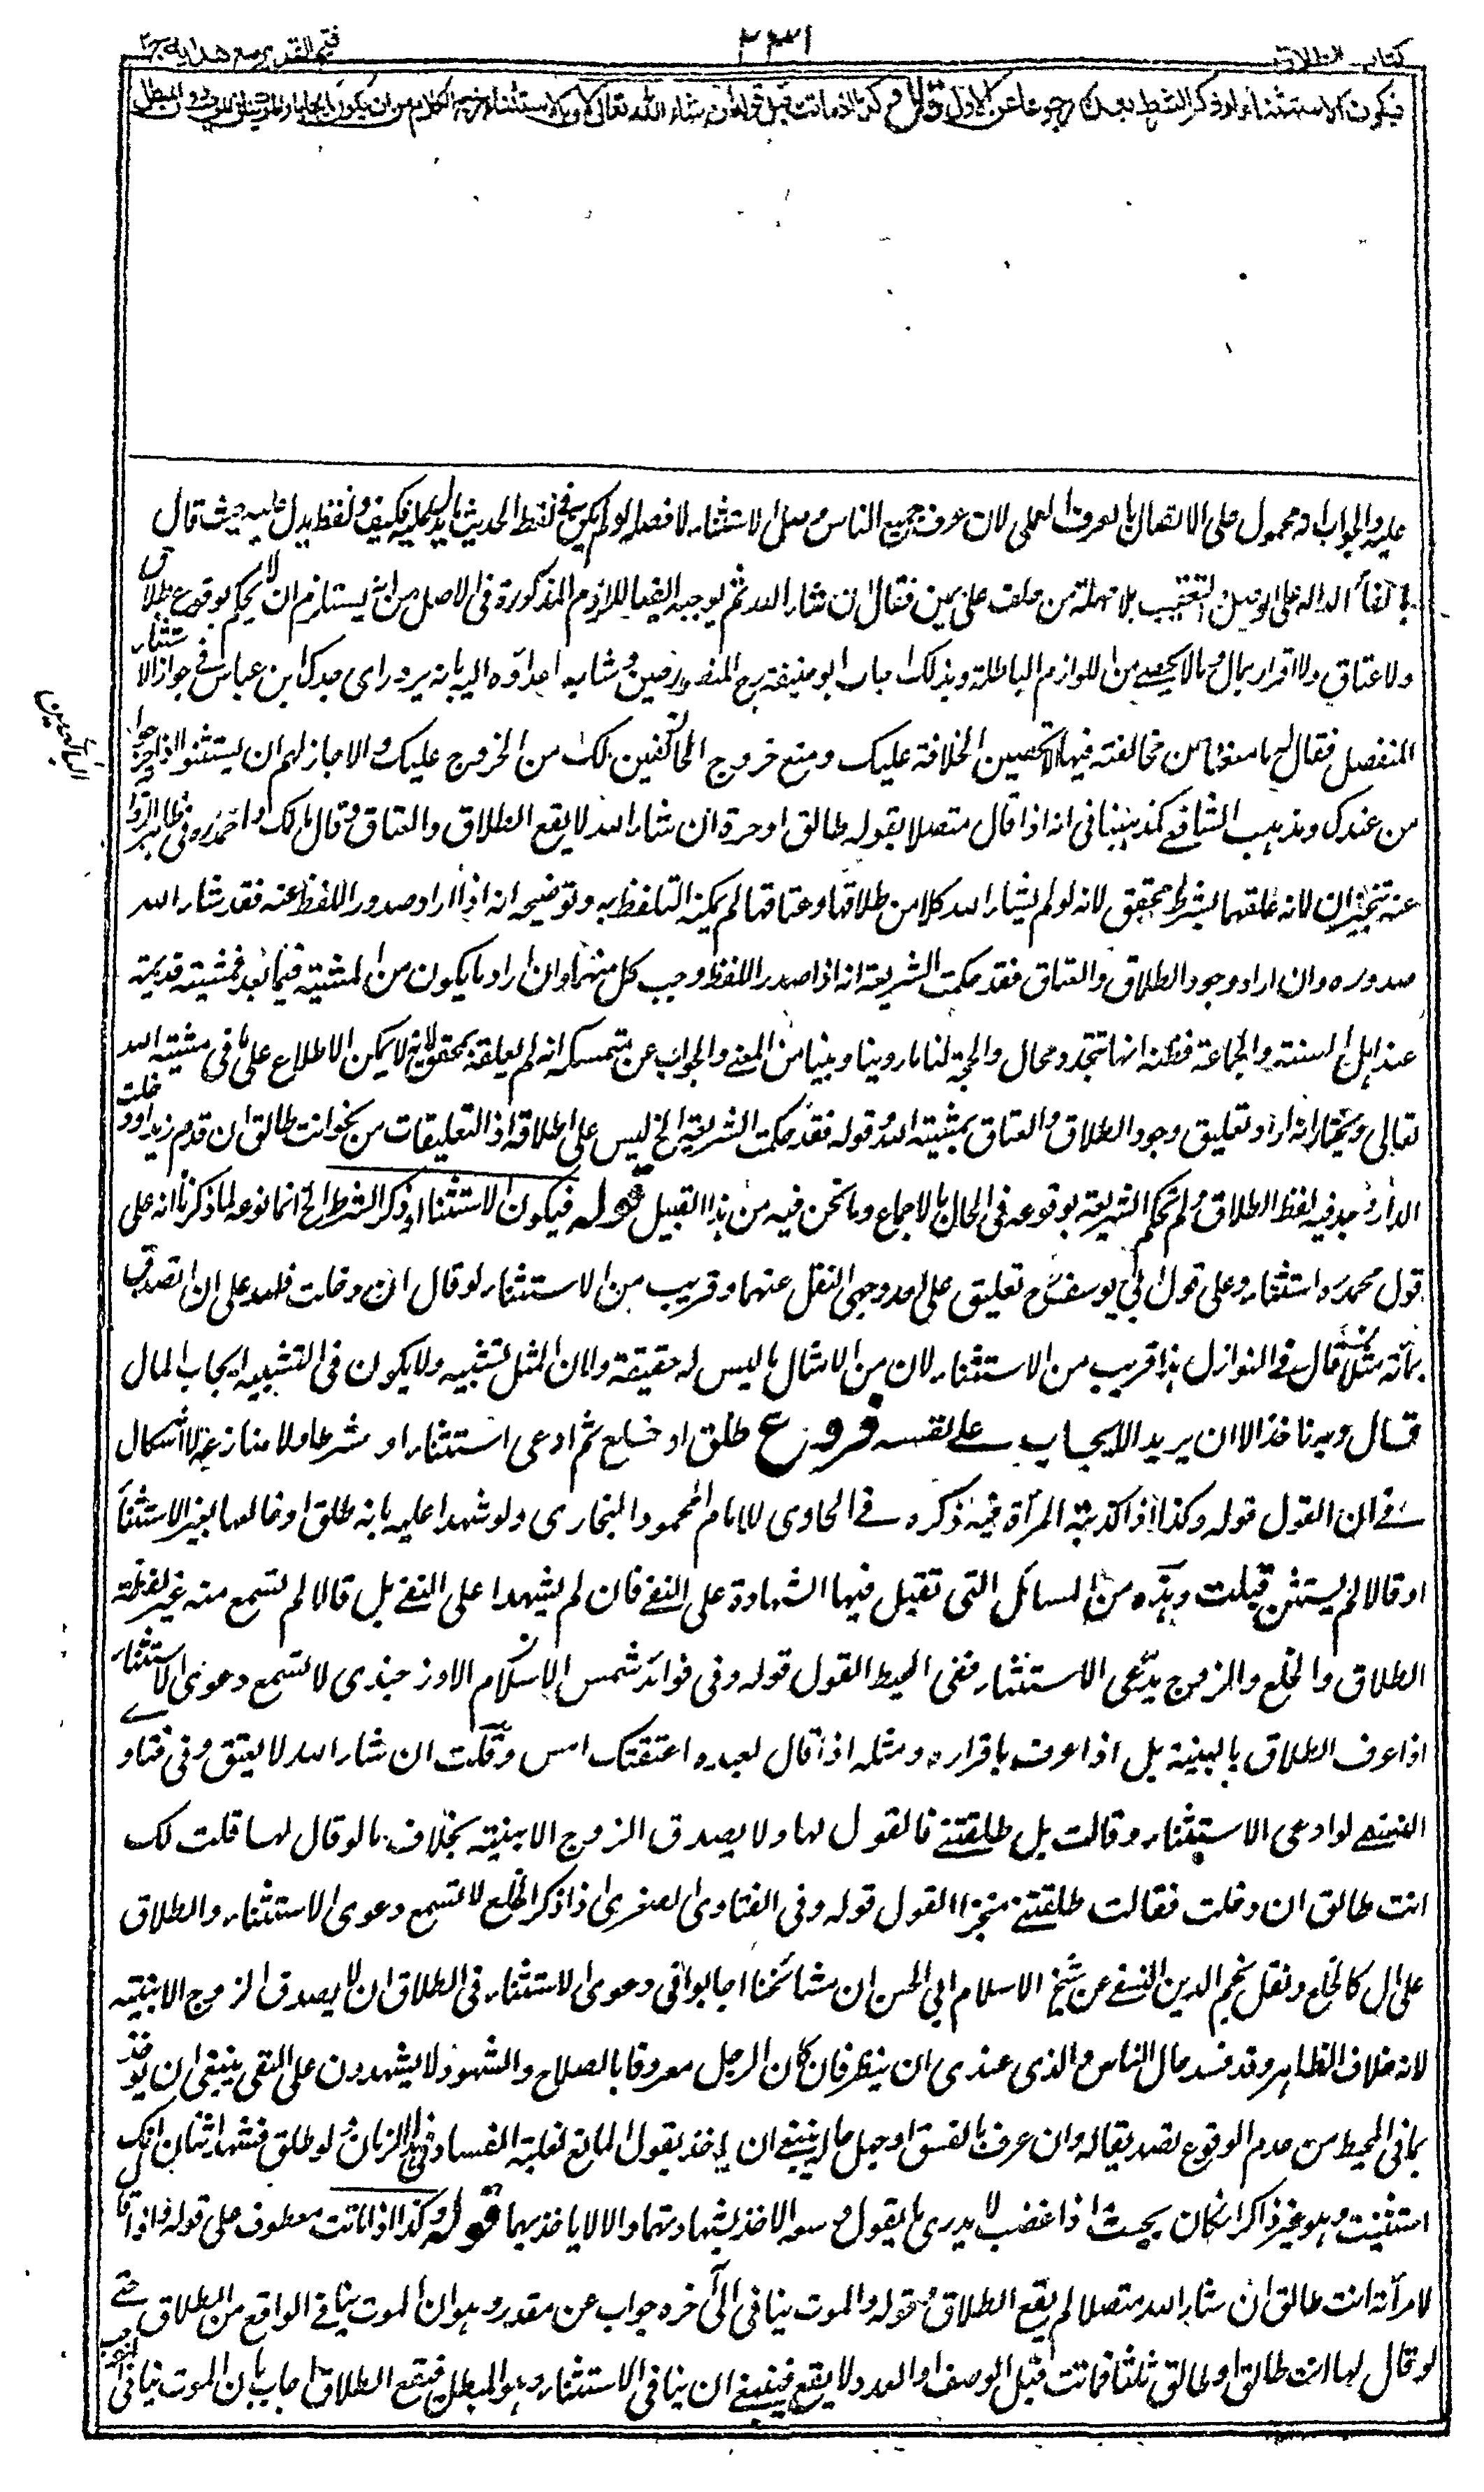 كتاب الطلاق
٢٣١
فتح القدير مع هدايه ج٢
فيكون الاستثناء او ذكر الشرط بعده رجوعا عن الاول قال وكذا اذا ماتت قبل قوله ان شاء الله تعالى لان بالاستثناء خرج الكلام من ان يكون ايجابا والموت ينافي الموجب دون المبطل
عليه والجواب انه محمول على الاتصال بالعرف العملي لان عرف جميع الناس وصل الاستثناء لا فصله ولو لم يكن في لفظ الحديث ما يدل عليه فكيف ولفظه يدل عليه حيث قال
بالفاء الدالة على الوصل والتعقيب بلا مهلة من حلف على يمين فقال ان شاء الله ثم يوجبه ايضا اللازم المذكورة في الاصل من انه يستلزم ان لا يحكم بوقوع طلاق
ولا عتاق ولا اقرار بمال ولا ما لا يحصى من اللوازم الباطلة وبذلك اجاب ابو حنيفة رح المنصور حين وشى به اعداؤه اليه بانه يرد راى جدك ابن عباس في جواز الاستثناء
المنفصل فقال له ما معناه من مخالفته فيها تحصين الخلافة عليك ومنع خروج الحالفين لك من الخروج عليك والا جاز لهم ان يستثنوا اذا خرجوا
من عندك ومذهب الشافعي كمذهبنا في انه اذا قال متصلا بقوله طالق او حرة ان شاء الله لا يقع الطلاق والعتاق وقال مالك واحمد ره في ظاهر الرواية
عنه يتنجزان لانه علقهما بشرط محقق لانه لو لم يشاء الله كلا من طلاقها وعتاقها لم يمكنه التلفظ به وتوضيحه انه اذا اراد صدور اللفظ عنه فقد شاء الله
صدوره وان اراد وجود الطلاق والعتاق فقد حكمت الشريعة انه اذا صدر اللفظ وجب كل منهما وان اراد ما يكون من المشيئة فيما بعد فمشيئته قديمة
عند اهل السنة والجماعة فظنه انها تتجدد محال والحجة لنا ما روينا وبينا من المعنى والجواب عن متمسكه انه لم يعلقه بمحقق لانه لا يمكن الاطلاع على ما في مشيئة الله
تعالى ويختار انه اراد تعليق وجود الطلاق والعتاق بمشيئة الله وقوله فقد حكمت الشريعة الخ ليس على اطلاقه اذ التعليقات من نحو انت طالق ان قدم زيد او دخلت
الدار وجد فيه لفظ الطلاق ولم تحكم الشريعة بوقوعه في الحال بالاجماع وما نحن فيه من هذا القبيل قوله فيكون الاستثناء او ذكر الشرط الخ انما نوعه لما ذكرنا انه على
قول محمد ره استثناء وعلى قول ابي يوسف رح تعليق على احد وجهي النقل عنهما وقريب من الاستثناء لو قال ان دخلت فلله على ان اتصدق
بمائة مثلا قال في النوازل هذا قريب من الاستثناء لان من الامثال ما ليس له حقيقة ولان المثل تشبيه ولا يكون في التشبيه ايجاب المال
قال وبه ناخذ الا ان يريد الايجاب على نفسه فروع طلق او خلع ثم ادعى استثناء او شرطا ولا منازع لا اشكال
في ان القول قوله وكذا اذا كذبته المرأة فيه ذكره في الحاوى للامام المحمود البخارى ولو شهدا عليه بانه طلق او خالعها بغير الاستثناء
او قالا لم يستثن قبلت وهذه من المسائل التى تقبل فيها الشهادة على النفى فان لم يشهدا على النفى بل قالا لم نسمع منه غير لفظة
الطلاق والخلع والزوج يدعى الاستثناء ففى المحيط القول قوله وفى فوائد شمس الاسلام الاوزجندى لا تسمع دعوى الاستثناء
اذا عرف الطلاق بالبينة بل اذا عرف باقراره ومثله اذا قال لعبده اعتقتك امس وقلت ان شاء الله لا يعتق وفى فتاوى
النسفى لو ادعى الاستثناء وقالت بل طلقتنى فالقول لها ولا يصدق الزوج الا ببينة بخلاف ما لو قال لها قلت لك
انت طالق ان دخلت فقالت طلقتنى منجزا القول قوله وفى الفتاوى الصغرى اذا ذكر الخلع لا تسمع دعوى الاستثناء والطلاق
على مال كالخلع ونقل نجم الدين النسفى عن شيخ الاسلام ابى الحسن ان مشائخنا اجابوا فى دعوى الاستثناء فى الطلاق ان لا يصدق الزوج الا ببينة
لانه خلاف الظاهر وقد فسد حال الناس والذى عندى ان ينظر فان كان الرجل معروفا بالصلاح والشهود لا يشهدون على النفى ينبغى ان يؤخذ
بما فى المحيط من عدم الوقوع تصديقا له وان عرف بالفسق او جهل حاله ينبغى ان ياخذ بقول المانع لغلبة الفساد فى هذا الزمان ولو طلق فشهد اثنان انك
استثنيت وهو غير ذاكر ان كان بحيث اذا غضب لا يدرى ما يقول وسعه الاخذ بشهادتهما والا لا ياخذ بهما قوله وكذا اذا ماتت معطوف على قوله واذا قال
لامرأته انت طالق ان شاء الله متصلا لم يقع الطلاق وقوله والموت ينافى الى آخره جواب عن مقدر وهو ان الموت ينافى الواقع من الطلاق حتى
لو قال لها انت طالق او طالق ثلثا فماتت قبل الوصف او العدد ولا يقع فينبغى ان ينافى الاستثناء وهو المبطل فيقع الطلاق اجاب بان الموت ينافى الموجب